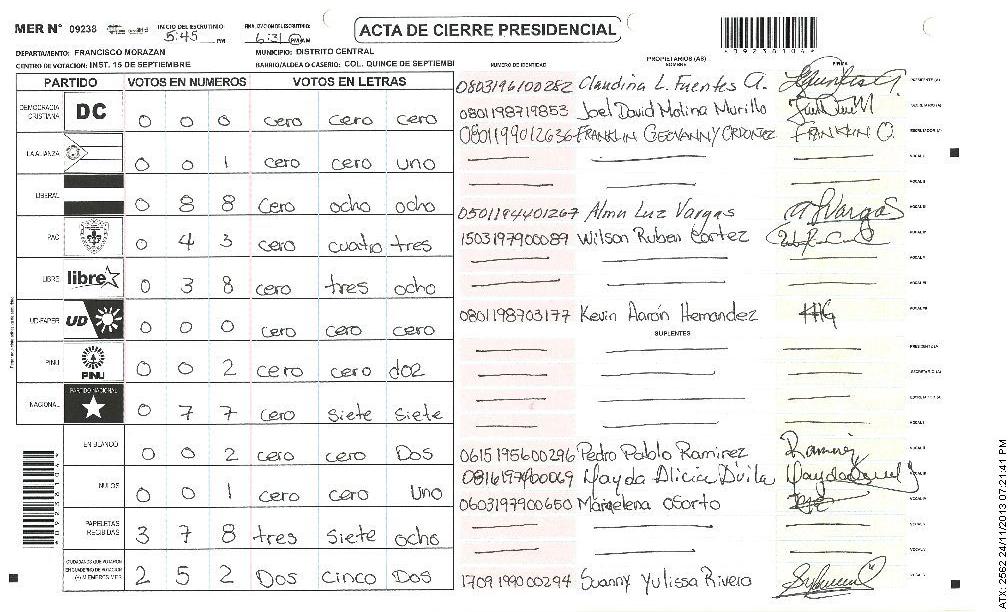 MER N° 09238 INICIO DEL ESCRUTINIO 5:45 PM FINALIZACION DEL ESCRUTINIO: 6:31 PM
ACTA DE CIERRE PRESIDENCIAL
DEPARTAMENTO: FRANCISCO MORAZAN MUNICIPIO: DISTRITO CENTRAL
CENTRO DE VOTACION: INST. 15 DE SEPTIEMBRE BARRIO/ALDEA O CASERIO: COL. QUINCE DE SEPTIEMBI
PARTIDO VOTOS EN NUMEROS VOTOS EN LETRAS
DEMOCRACIA CRISTIANA DC 0 0 0 cero cero cero
LA ALIANZA 0 0 1 cero cero uno
LIBERAL 0 8 8 cero ocho ocho
PAC 0 4 3 cero cuatro tres
LIBRE libre 0 3 8 cero tres ocho
UD-FAPER UD 0 0 0 cero cero cero
PINU PINU 0 0 2 cero cero doz
NACIONAL PARTIDO NACIONAL 0 7 7 cero siete siete
EN BLANCO 0 0 2 cero cero Dos
NULOS 0 0 1 cero cero uno
PAPELETAS RECIBIDAS 3 7 8 tres siete ocho
CIUDADANOS QUE VOTARON EN CUADERNO DE VOTACION (+) MIEMBROS MER 2 5 2 Dos cinco Dos
PROPIETARIOS (AS)
NUMERO DE IDENTIDAD NOMBRE FIRMA
0803196100282 Claudina L. Fuentes A. PRESIDENTE (A)
0801198719853 Joel David Molina Murillo SECRETARIO (A)
0801199012636 FRANKLIN GEOVANNY ORDOÑEZ FRANKLIN O. ESCRUTADOR (A)
VOCAL I
VOCAL II
0501194401267 Alma Luz Vargas A L Vargas
1503197900089 Wilson Ruben Cortez
0801198703177 Kevin Aarón Hernandez
SUPLENTES
PRESIDENTE (A)
SECRETARIO (A)
VOCAL I
0615195600296 Pedro Pablo Ramirez Ramirez
0816197400069 Hayda Alicia Dúvila
0603197900650 Margelena Osorto
1709199000294 Suanny Yulissa Rivera
*09238104*
ATX-2562 24/11/2013 07:21:41 PM